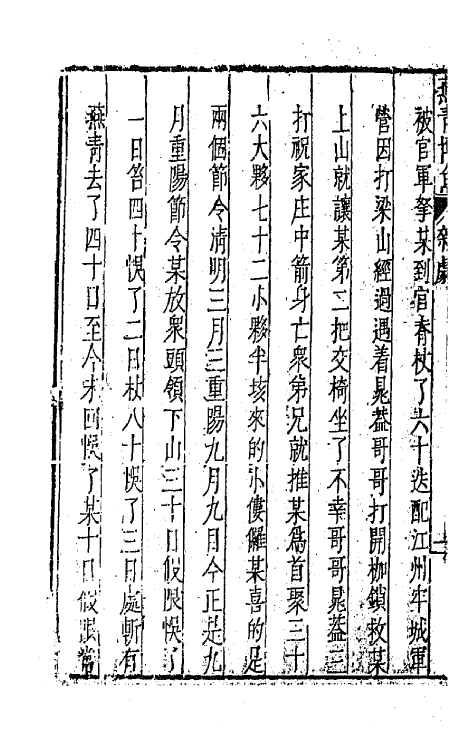 燕青博魚 雜劇
被官軍拏某到官脊杖了六十迭配江州牢城軍
營因打梁山經過遇着晁蓋哥哥打開枷鎖救某
上山就讓某第二把交椅坐了不幸哥哥晁蓋三
打祝家庄中箭身亡衆弟兄就推某爲首聚三十
六大夥七十二小夥半垓來的小僂儸某喜的是
兩個節令清明三月三重陽九月九目今正是九
月重陽節令某放衆頭領下山三十日假限悞了
一日笞四十悞了二日杖八十悞了三日處斬有
燕青去了四十日至今未回悞了某十日假限常